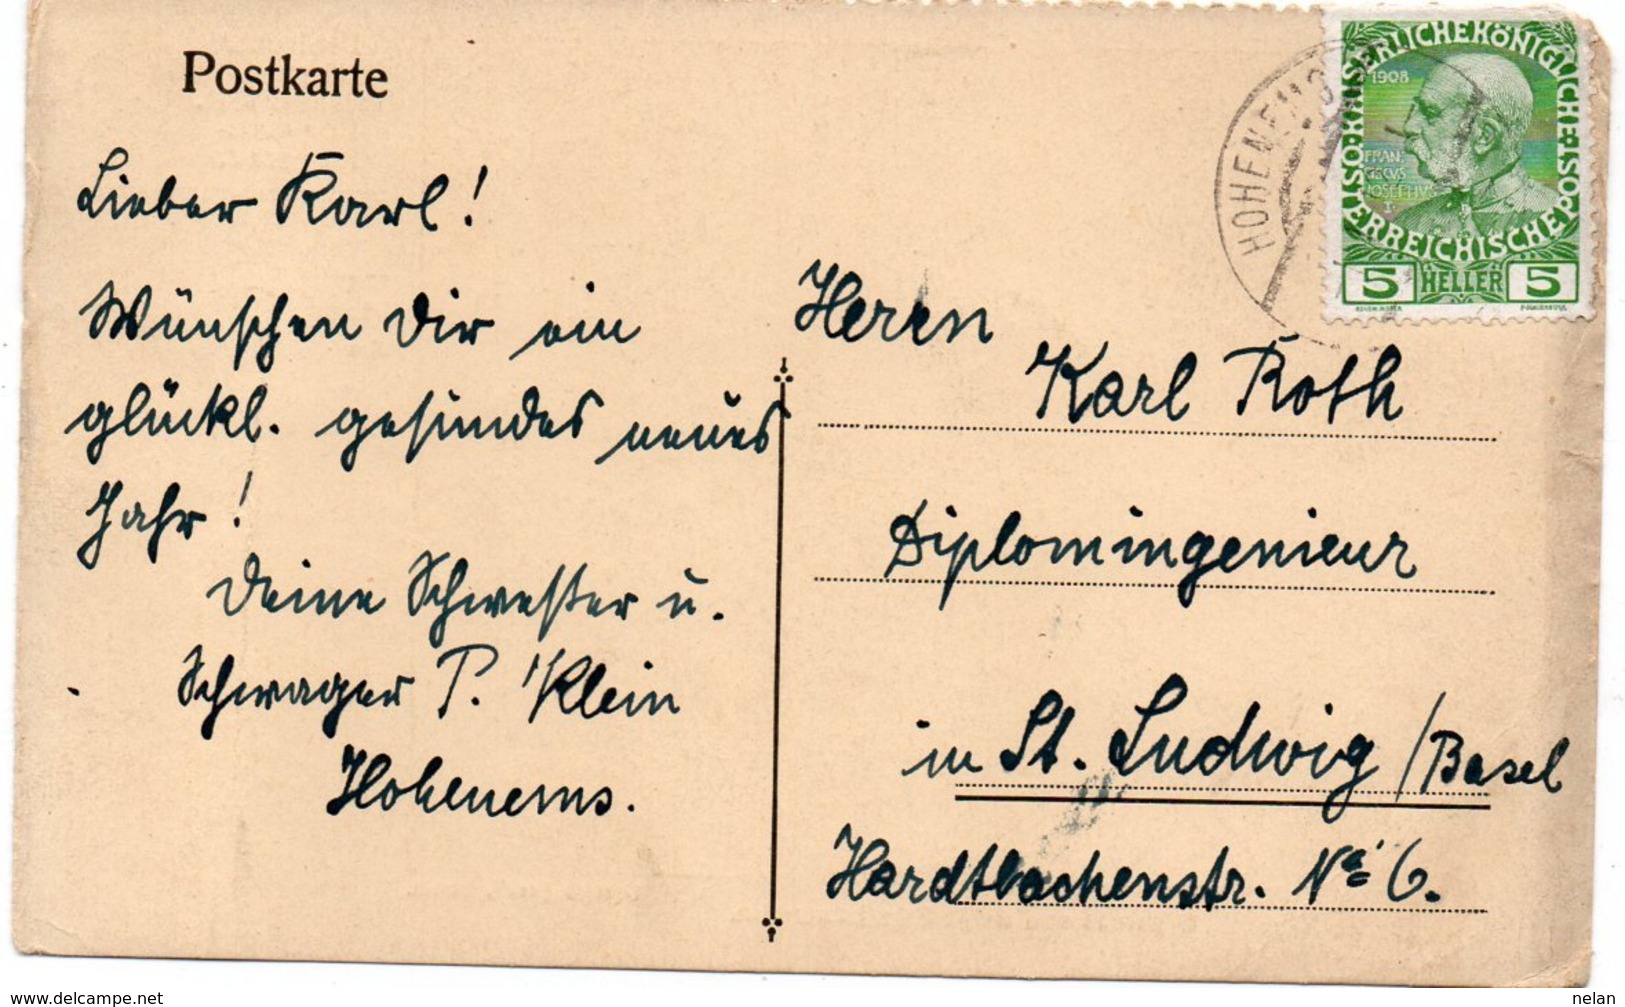 Postkarte
Lieber Karl!
Wünschen Dir ein
glückl. gesundes neues
Jahr!
Deine Schwester u.
Schwager P. Klein
Hohenems.
Herrn
Karl Roth
Diplomingenieur
in St. Ludwig / Basel
No 6.
HOHENEMS
KAISERLICHE KÖNIGLICHE ÖSTERREICHISCHE POST
1908
FRAN
CISCVS
IOSEPHVS
I
5 HELLER 5
www.delcampe.net
nelan